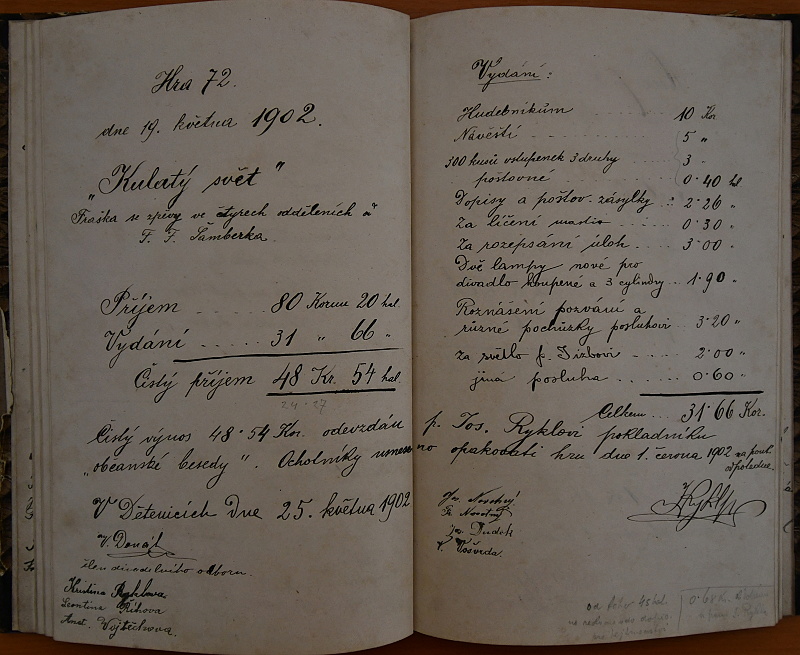 Hra 72.
dne 19. května 1902.
„Kulatý svět"
Fraška se zpěvy ve čtyřech odděleních od
F. F. Šamberka.
Příjem ..... 80 Korun 20 hal.
Vydání ..... 31 „ 66 „
Čistý příjem 48 Kr. 54 hal.
24·27
Čistý výnos 48·54 Kor. odevzdán
„občanské besedy". Ochotníky
V Dětenicích dne 25. května 1902
V. Donát
člen divadelního odboru.
Kristina Ryklova
Leontina Říhova
Anst. Vojtěchova.
Vydání:
Hudebníkům 10 Kor
Návěstí 5 „
300 kusů vstupenek 3 druhy 3 „
poštovné 0·40 hal
Dopisy a poštov. zásylky 2·26 „
Za líčení 0·30 „
Za rozepsání úloh 3·00 „
Dvě lampy nové pro
divadlo koupené a 3 cylindry 1·90 „
Roznášení pozvání a
různé pochůzky posluhovi 3·20 „
za světlo p. 2·00 „
jiná posluha 0·60 „
Celkem ... 31·66 Kor.
p. Jos. Ryklovi pokladníku
opakovati hru dne 1. června 1902
odpoledne.
Novotný
Fr. Novotný
Jos. Dudek
V. Vosveda.
JRykl